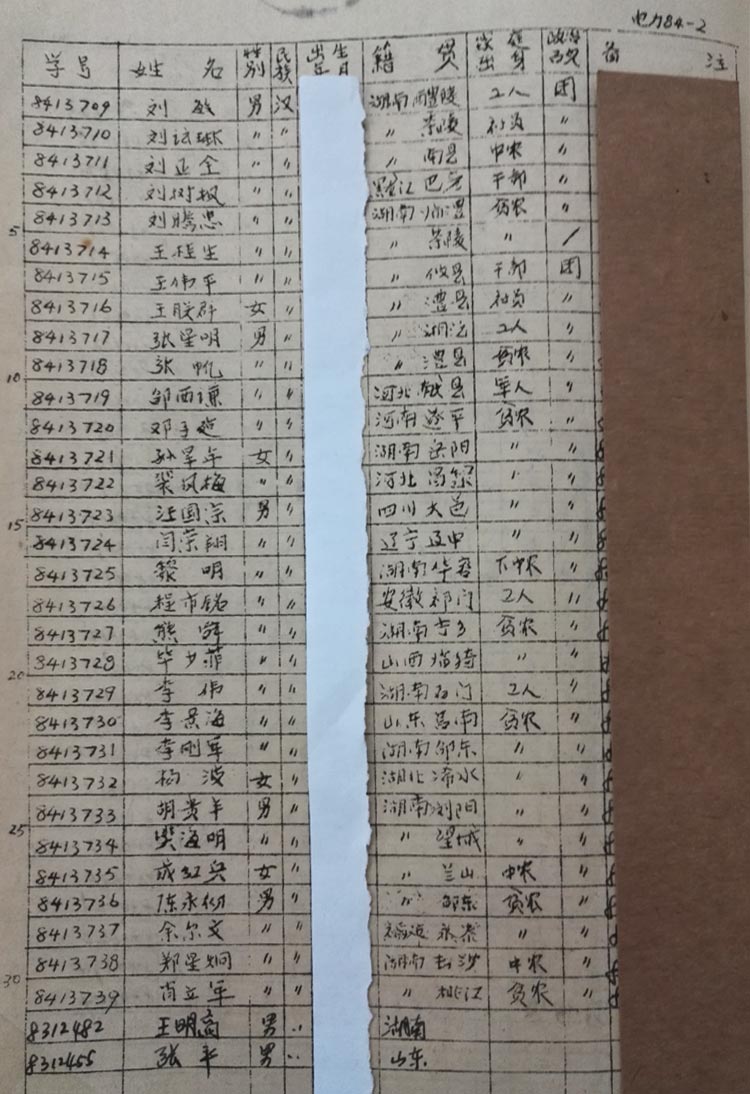 电力84-2
学号 姓名 性别 民族 出生年月 籍贯 家庭出身 政治面貌 备注
8413709 刘敏 男 汉 湖南醴陵 工人 团
8413710 〃 〃 〃 茶陵 社员 〃
8413711 刘正全 〃 〃 〃 南县 中农 〃
8413712 刘树枫 〃 〃 黑龙江 巴彦 干部 〃
5 8413713 刘腾忠 〃 〃 湖南 贫农 〃
8413714 王桂生 〃 〃 〃 茶陵 〃 /
8413715 王伟平 〃 〃 〃 攸县 干部 团
8413716 王朕群 女 〃 〃 澧县 社员 〃
8413717 张星明 男 〃 〃 工人 〃
10 8413718 张帆 〃 〃 〃 澧县 贫农 〃
8413719 邹西谦 〃 〃 河北 军人 〃
8413720 邓手延 〃 〃 河南遂平 贫农 〃
8413721 女 〃 湖南岳阳 〃 〃
8413722 梁凤梅 〃 〃 河北 〃 〃
15 8413723 汪国宗 男 〃 四川大邑 〃 〃
8413724 闫荣翔 〃 〃 辽宁辽中 〃 〃
8413725 黎明 〃 〃 湖南华容 下中农 〃
8413726 程市铭 〃 〃 安徽祁门 工人 〃
8413727 熊 〃 〃 湖南宁乡 贫农 〃
20 8413728 毕少菲 〃 〃 山西临猗 〃 〃
8413729 李伟 〃 〃 湖南石门 工人 〃
8413730 李景海 〃 〃 山东莒南 贫农 〃
8413731 李刚军 〃 〃 湖南邵东 〃 〃
8413732 杨波 女 〃 湖北浠水 〃 〃
25 8413733 胡贵年 男 〃 湖南浏阳 〃 〃
8413734 樊海明 〃 〃 〃 望城 〃 〃
8413735 成红兵 女 〃 〃 兰山 中农 〃
8413736 陈永彻 男 〃 〃 邵东 贫农 〃
8413737 余尔文 〃 〃 福建永泰 〃 〃
30 8413738 郑星炯 〃 〃 湖南长沙 中农 〃
8413739 肖立军 〃 〃 〃 桃江 贫农 〃
8312482 王明高 男 〃 湖南
8312455 张平 男 〃 山东